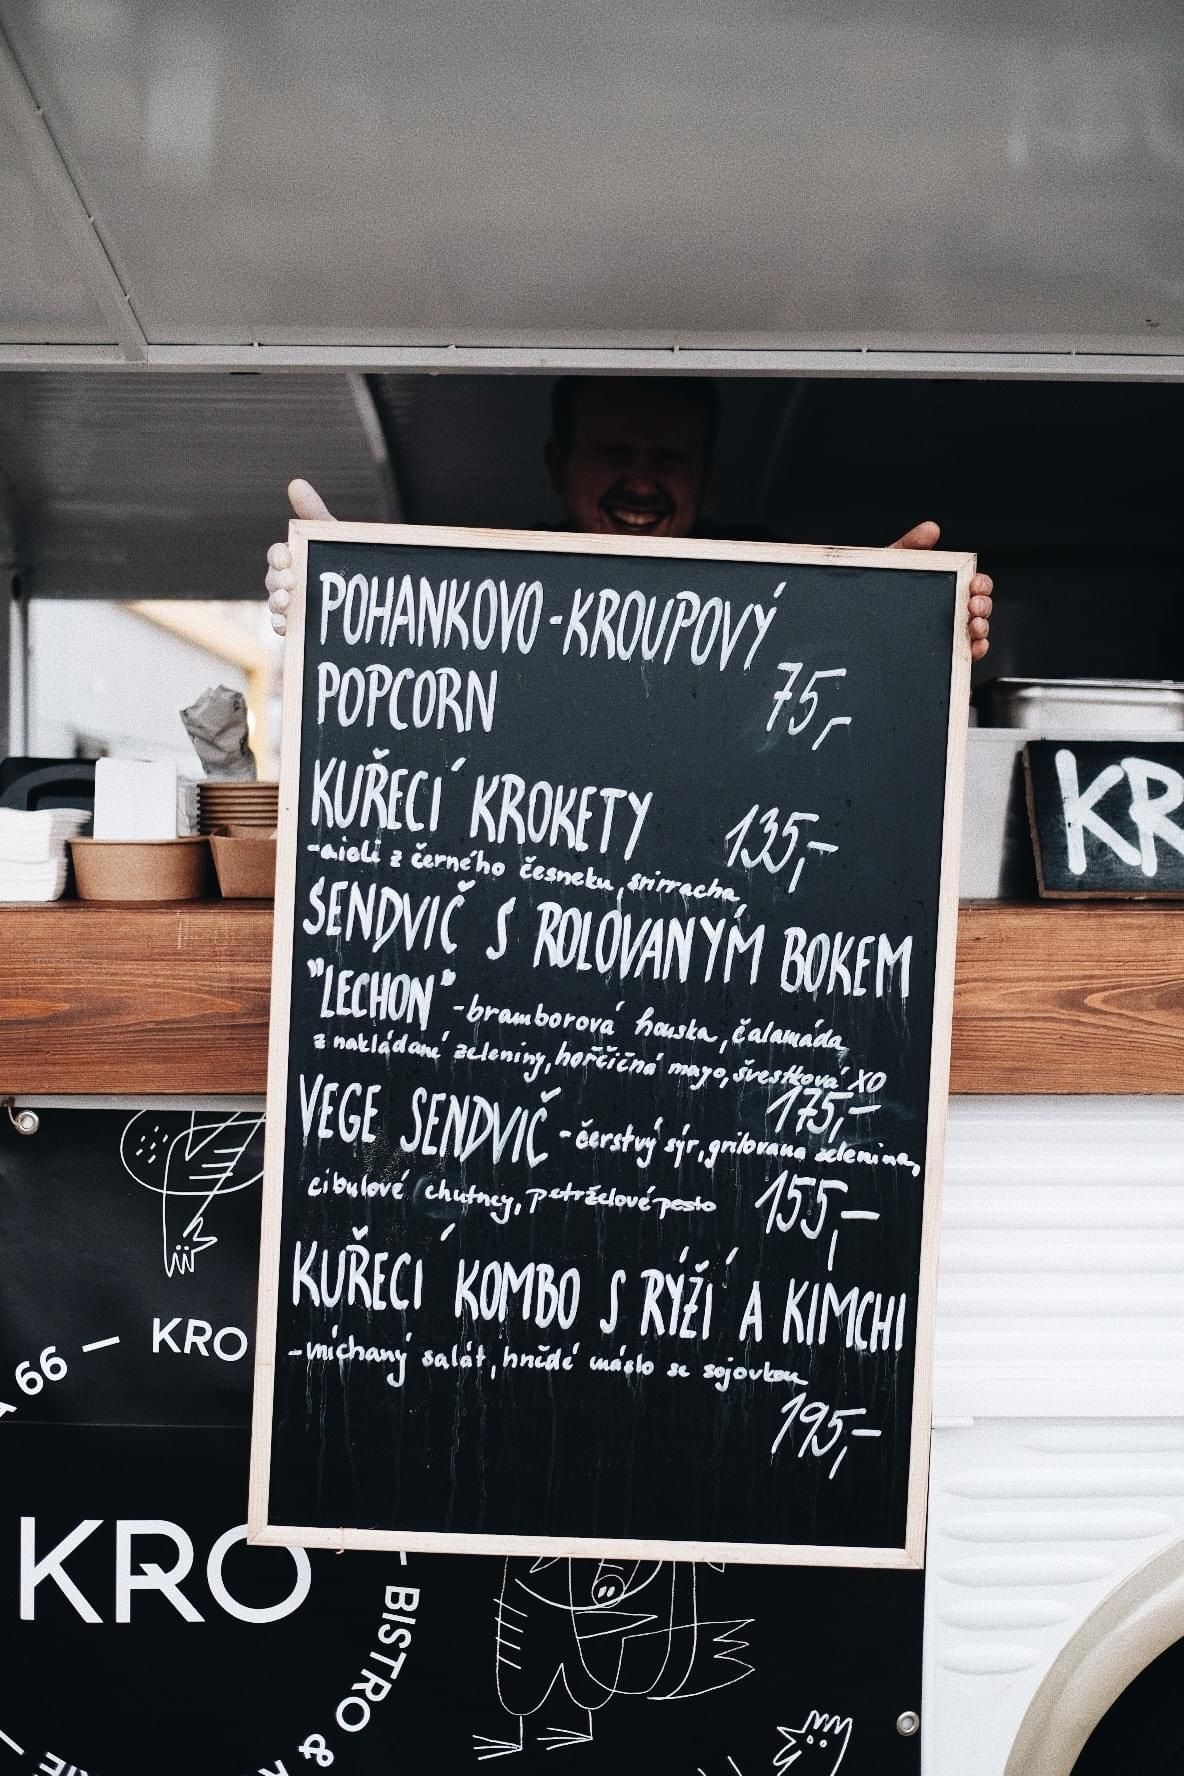 POHANKOVO-KROUPOVÝ
POPCORN 75,-
KUŘECÍ KROKETY 135,-
-aioli z černého česneku, srirracha
SENDVIČ S ROLOVANÝM BOKEM
"LECHON" -bramborová houska, čalamáda
z nakládané zeleniny, hořčičná mayo, švestková XO
175,-
VEGE SENDVIČ -čerstvý sýr, grilovana zelenina,
cibulové chutney, petrželové pesto 155,-
KUŘECÍ KOMBO S RÝŽÍ A KIMCHI
-míchaný salát, hnědé máslo se sojovkou
195,-
KR
66 — KRO
KRO
— BISTRO &